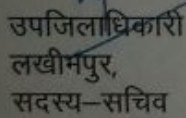 उपजिलाधिकारी
लखीमपुर,
सदस्य–सचिव